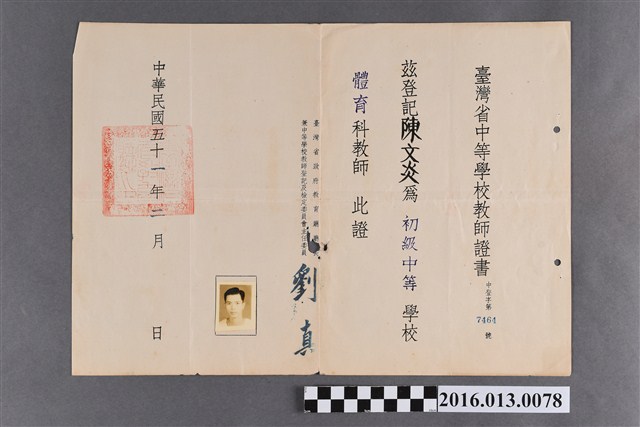 臺灣省中等學校教師證書
中登字第7464號
茲登記陳文炎為初級中等學校
體育科教師 此證
臺灣省政府教育廳廳
兼中等學校教師登記及檢定委員會主任委員
劉真
中華民國五十一年二月 日
2016.013.0078